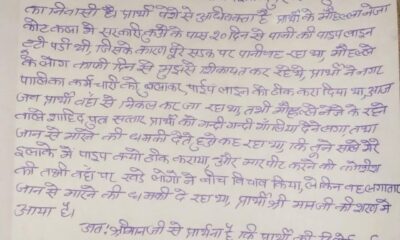 का निवासी है। प्रार्थी पेशे से अधिवक्ता है प्रार्थी के मौहल्ला नेजा
कोट कस्बा में सरकारी कुँए के पास २० दिन से पानी की पाइप लाइन
टूटी पड़ी थी, जिसके कारण पूरे सड़क पर पानी बह रहा था, मौहल्ले
के लोग काफी दिन से मुझसे शिकायत कर रहे थे, प्रार्थी ने नगर
पालिका कर्मचारी को बुलाकर पाईप लाइन को ठीक करा दिया था, आज
जब प्रार्थी वहाँ से निकल कर जा रहा था, तभी मौहल्ले नेजे के रहने
वाले शाहिद पुत्र सत्तार प्रार्थी को गन्दी गन्दी गालियां देने लगा, तथा
जान से मारने की धमकी देते हुऐ कह रहा था, कि तूने साले मेरे
इलाके में पाइप क्यों ठीक कराया और मारपीट करने की कोशिश
की तभी वहाँ पर खड़े लोगों ने बीच बिचाव किया, लेकिन वह लगातार
जान से मारने की धमकी दे रहा था, प्रार्थी श्रीमान जी की शरण में
आया है।
अतः श्रीमान जी से प्रार्थना है कि प्रार्थी की